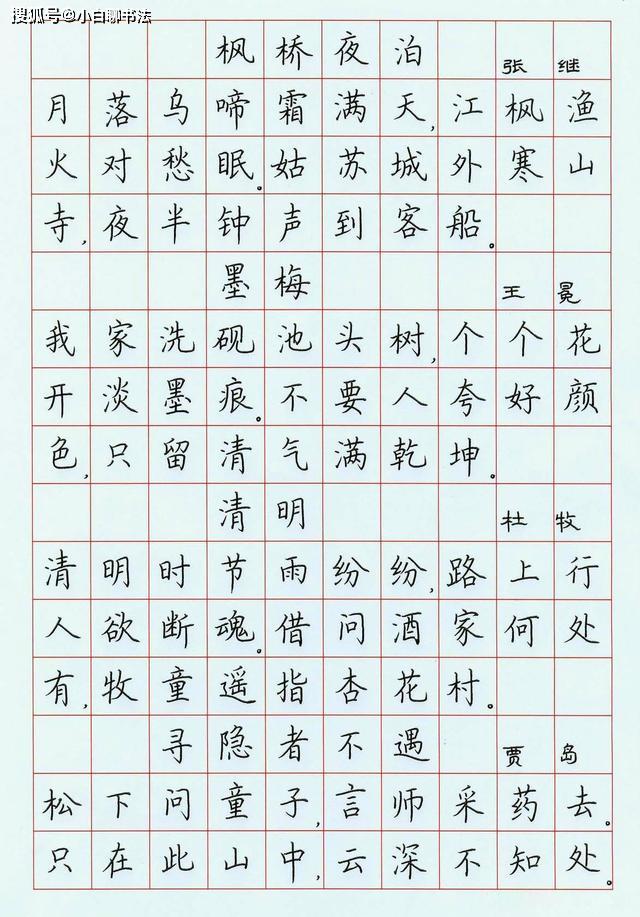 搜狐号@小白聊书法
枫桥夜泊 张继
月落乌啼霜满天,江枫渔
火对愁眠。姑苏城外寒山
寺,夜半钟声到客船。
墨梅 王冕
我家洗砚池头树,个个花
开淡墨痕。不要人夸好颜
色,只留清气满乾坤。
清明 杜牧
清明时节雨纷纷,路上行
人欲断魂。借问酒家何处
有,牧童遥指杏花村。
寻隐者不遇 贾岛
松下问童子,言师采药去。
只在此山中,云深不知处。